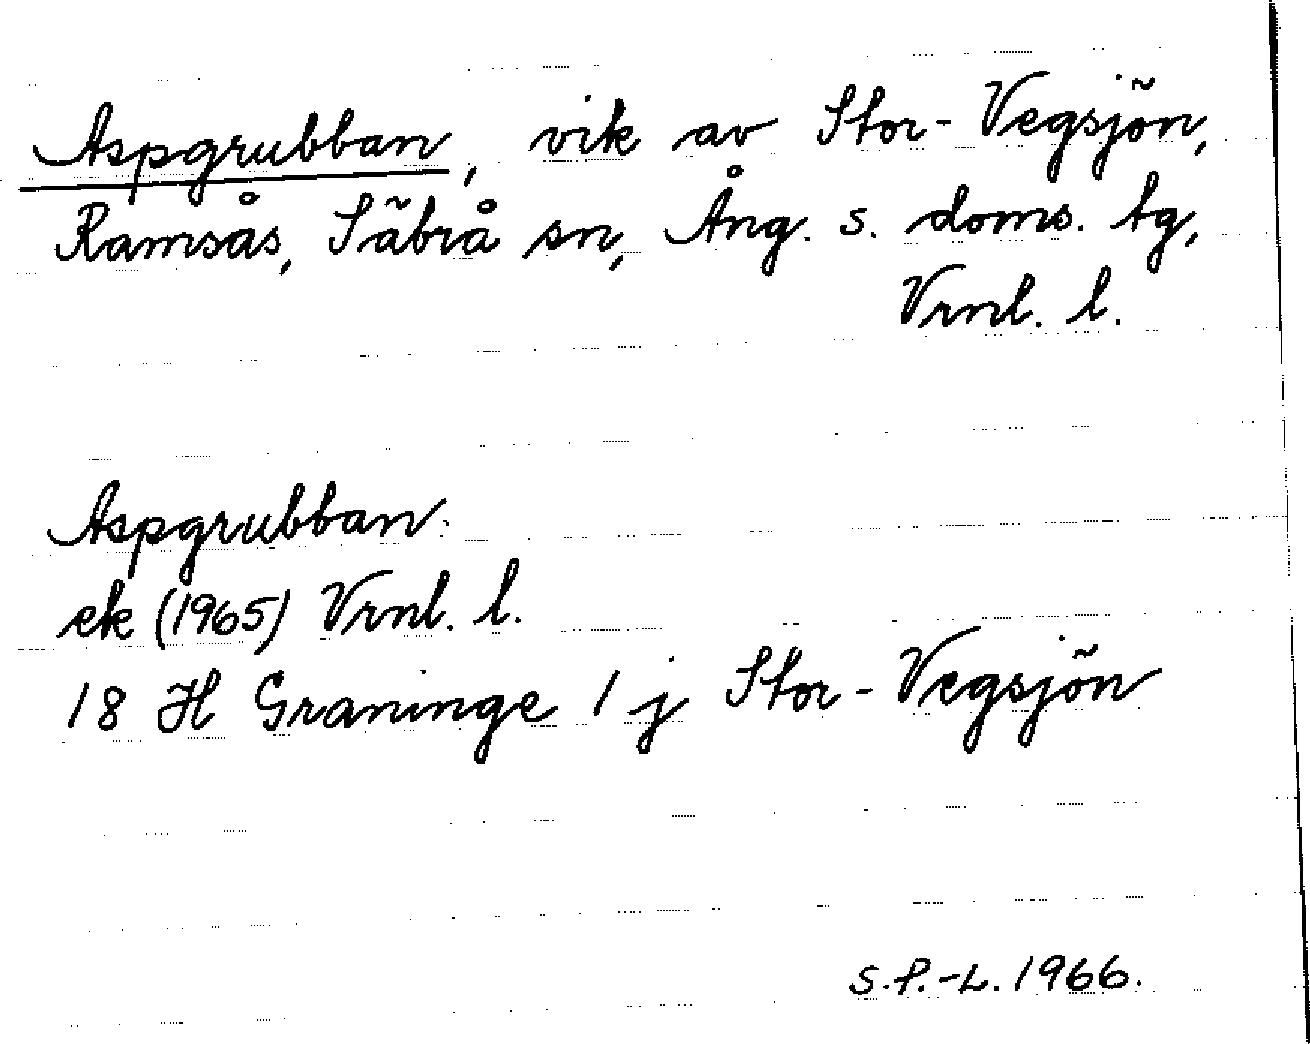 Aspgrubban, vik av Stor-Vegsjön,
Ramsås, Säbrå sn, Ång. s. doms. tg,
Vrnl. l.
Aspgrubban:
ek (1965) Vrnl. l.
18 H Graninge 1 j Stor-Vegsjön
S.P.-L. 1966.